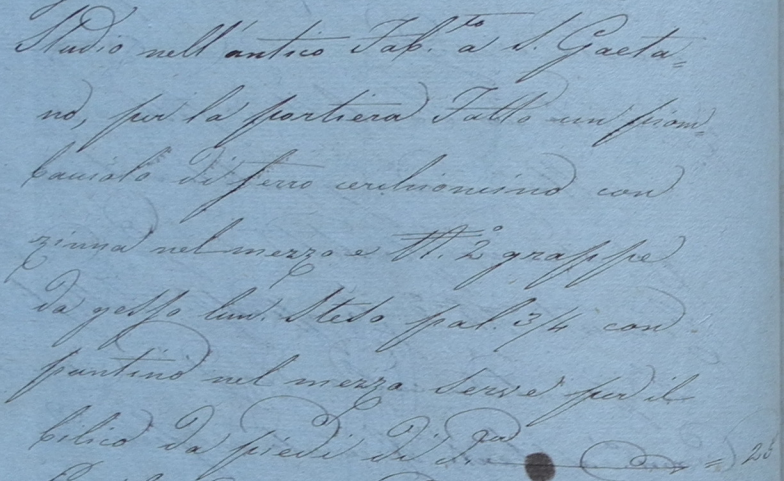 Studio nell'antico Fab.to a S. Gaeta=
no, per la portiera Fatto un piom=
baciolo di ferro cerchioncino con
zinna nel mezzo e N. 2 grappe
da gesso lun. Steso pal. 3/4 con
puntino nel mezzo serve per il
bilico da piedi di d.a = 25